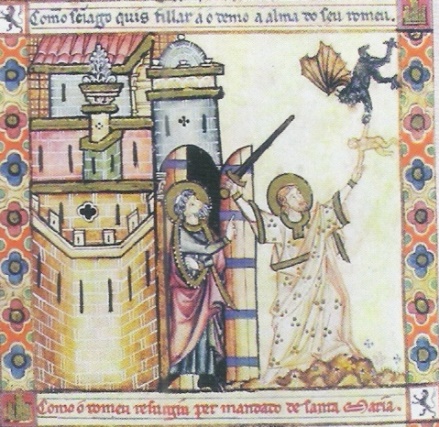 Como sc̃iago quis fillar a o demo a alma do seu romeu.
Como o romeu resurgiu per mandado de santa Maria.